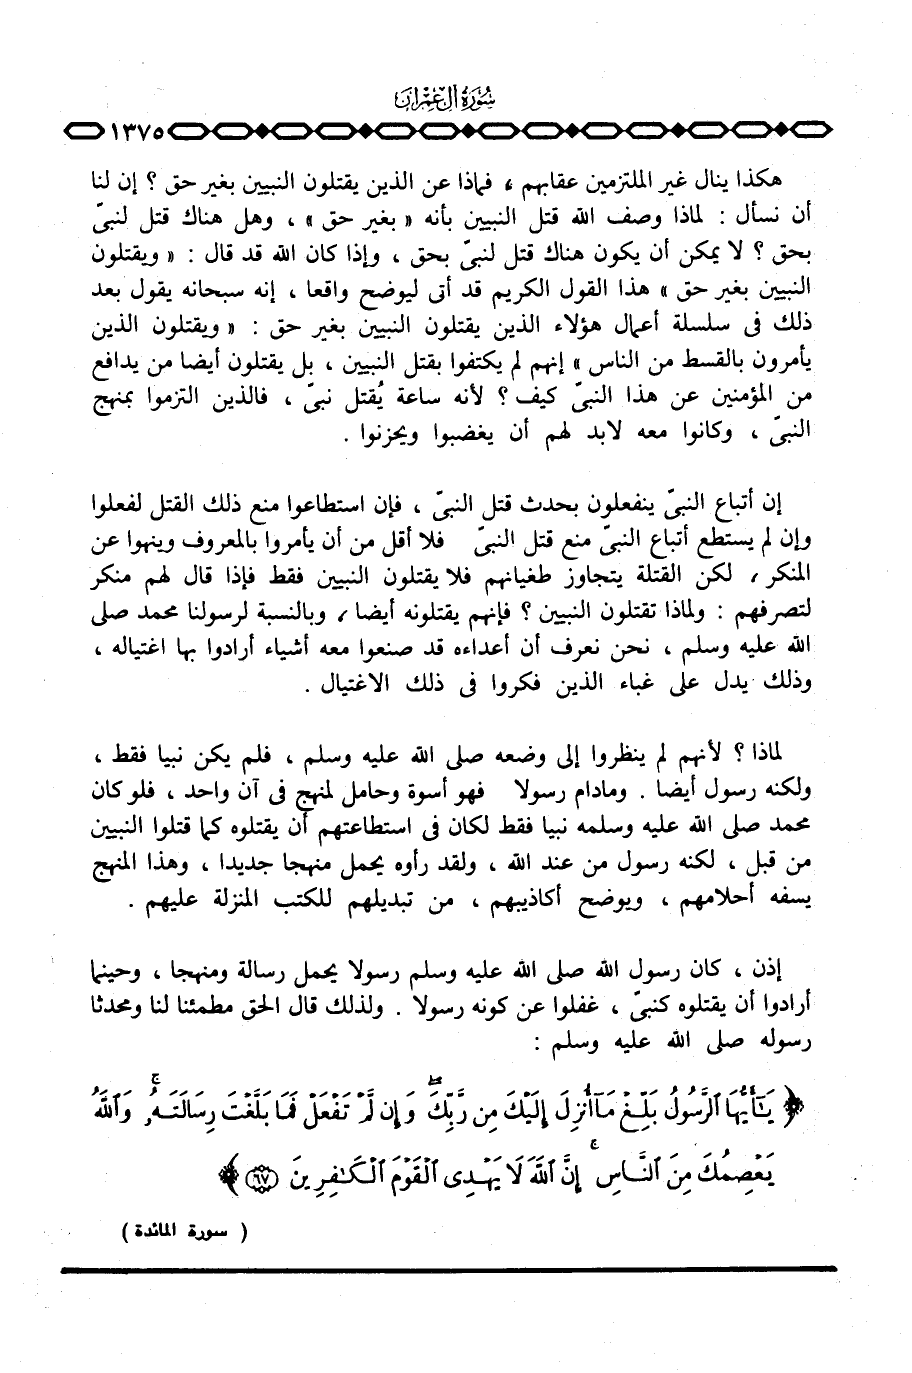 سُورَةُ آلِ عِمْرَانَ
١٣٧٥
هكذا ينال غير الملتزمين عقابهم ، فماذا عن الذين يقتلون النبيين بغير حق ؟ إن لنا
أن نسأل : لماذا وصف الله قتل النبيين بأنه « بغير حق » ، وهل هناك قتل لنبىّ
بحق ؟ لا يمكن أن يكون هناك قتل لنبىّ بحق ، وإذا كان الله قد قال : « ويقتلون
النبيين بغير حق » هذا القول الكريم قد أتى ليوضح واقعا ، إنه سبحانه يقول بعد
ذلك فى سلسلة أعمال هؤلاء الذين يقتلون النبيين بغير حق : « ويقتلون الذين
يأمرون بالقسط من الناس » إنهم لم يكتفوا بقتل النبيين ، بل يقتلون أيضا من يدافع
من المؤمنين عن هذا النبىّ كيف ؟ لأنه ساعة يُقتل نبىّ ، فالذين التزموا بمنهج
النبىّ ، وكانوا معه لابد لهم أن يغضبوا ويحزنوا .
إن أتباع النبىّ ينفعلون بحدث قتل النبىّ ، فإن استطاعوا منع ذلك القتل لفعلوا
وإن لم يستطع أتباع النبىّ منع قتل النبىّ فلا أقل من أن يأمروا بالمعروف وينهوا عن
المنكر ، لكن القتلة يتجاوز طغيانهم فلا يقتلون النبيين فقط فإذا قال لهم منكر
لتصرفهم : ولماذا تقتلون النبيين ؟ فإنهم يقتلونه أيضا ، وبالنسبة لرسولنا محمد صلى
الله عليه وسلم ، نحن نعرف أن أعداءه قد صنعوا معه أشياء أرادوا بها اغتياله ،
وذلك يدل على غباء الذين فكروا فى ذلك الاغتيال .
لماذا ؟ لأنهم لم ينظروا إلى وضعه صلى الله عليه وسلم ، فلم يكن نبيا فقط ،
ولكنه رسول أيضا . ومادام رسولا فهو أسوة وحامل لمنهج فى آن واحد ، فلو كان
محمد صلى الله عليه وسلمه نبيا فقط لكان فى استطاعتهم أن يقتلوه كما قتلوا النبيين
من قبل ، لكنه رسول من عند الله ، ولقد رأوه يحمل منهجا جديدا ، وهذا المنهج
يسفه أحلامهم ، ويوضح أكاذيبهم ، من تبديلهم للكتب المنزلة عليهم .
إذن ، كان رسول الله صلى الله عليه وسلم رسولا يحمل رسالة ومنهجا ، وحينما
أرادوا أن يقتلوه كنبىّ ، غفلوا عن كونه رسولا . ولذلك قال الحق مطمئنا لنا ومحدثا
رسوله صلى الله عليه وسلم :
﴿ يَٰٓأَيُّهَا ٱلرَّسُولُ بَلِّغْ مَآ أُنزِلَ إِلَيْكَ مِن رَّبِّكَ ۖ وَإِن لَّمْ تَفْعَلْ فَمَا بَلَّغْتَ رِسَالَتَهُۥ ۚ وَٱللَّهُ
يَعْصِمُكَ مِنَ ٱلنَّاسِ ۗ إِنَّ ٱللَّهَ لَا يَهْدِى ٱلْقَوْمَ ٱلْكَٰفِرِينَ ﴿٦٧﴾ ﴾
( سورة المائدة )